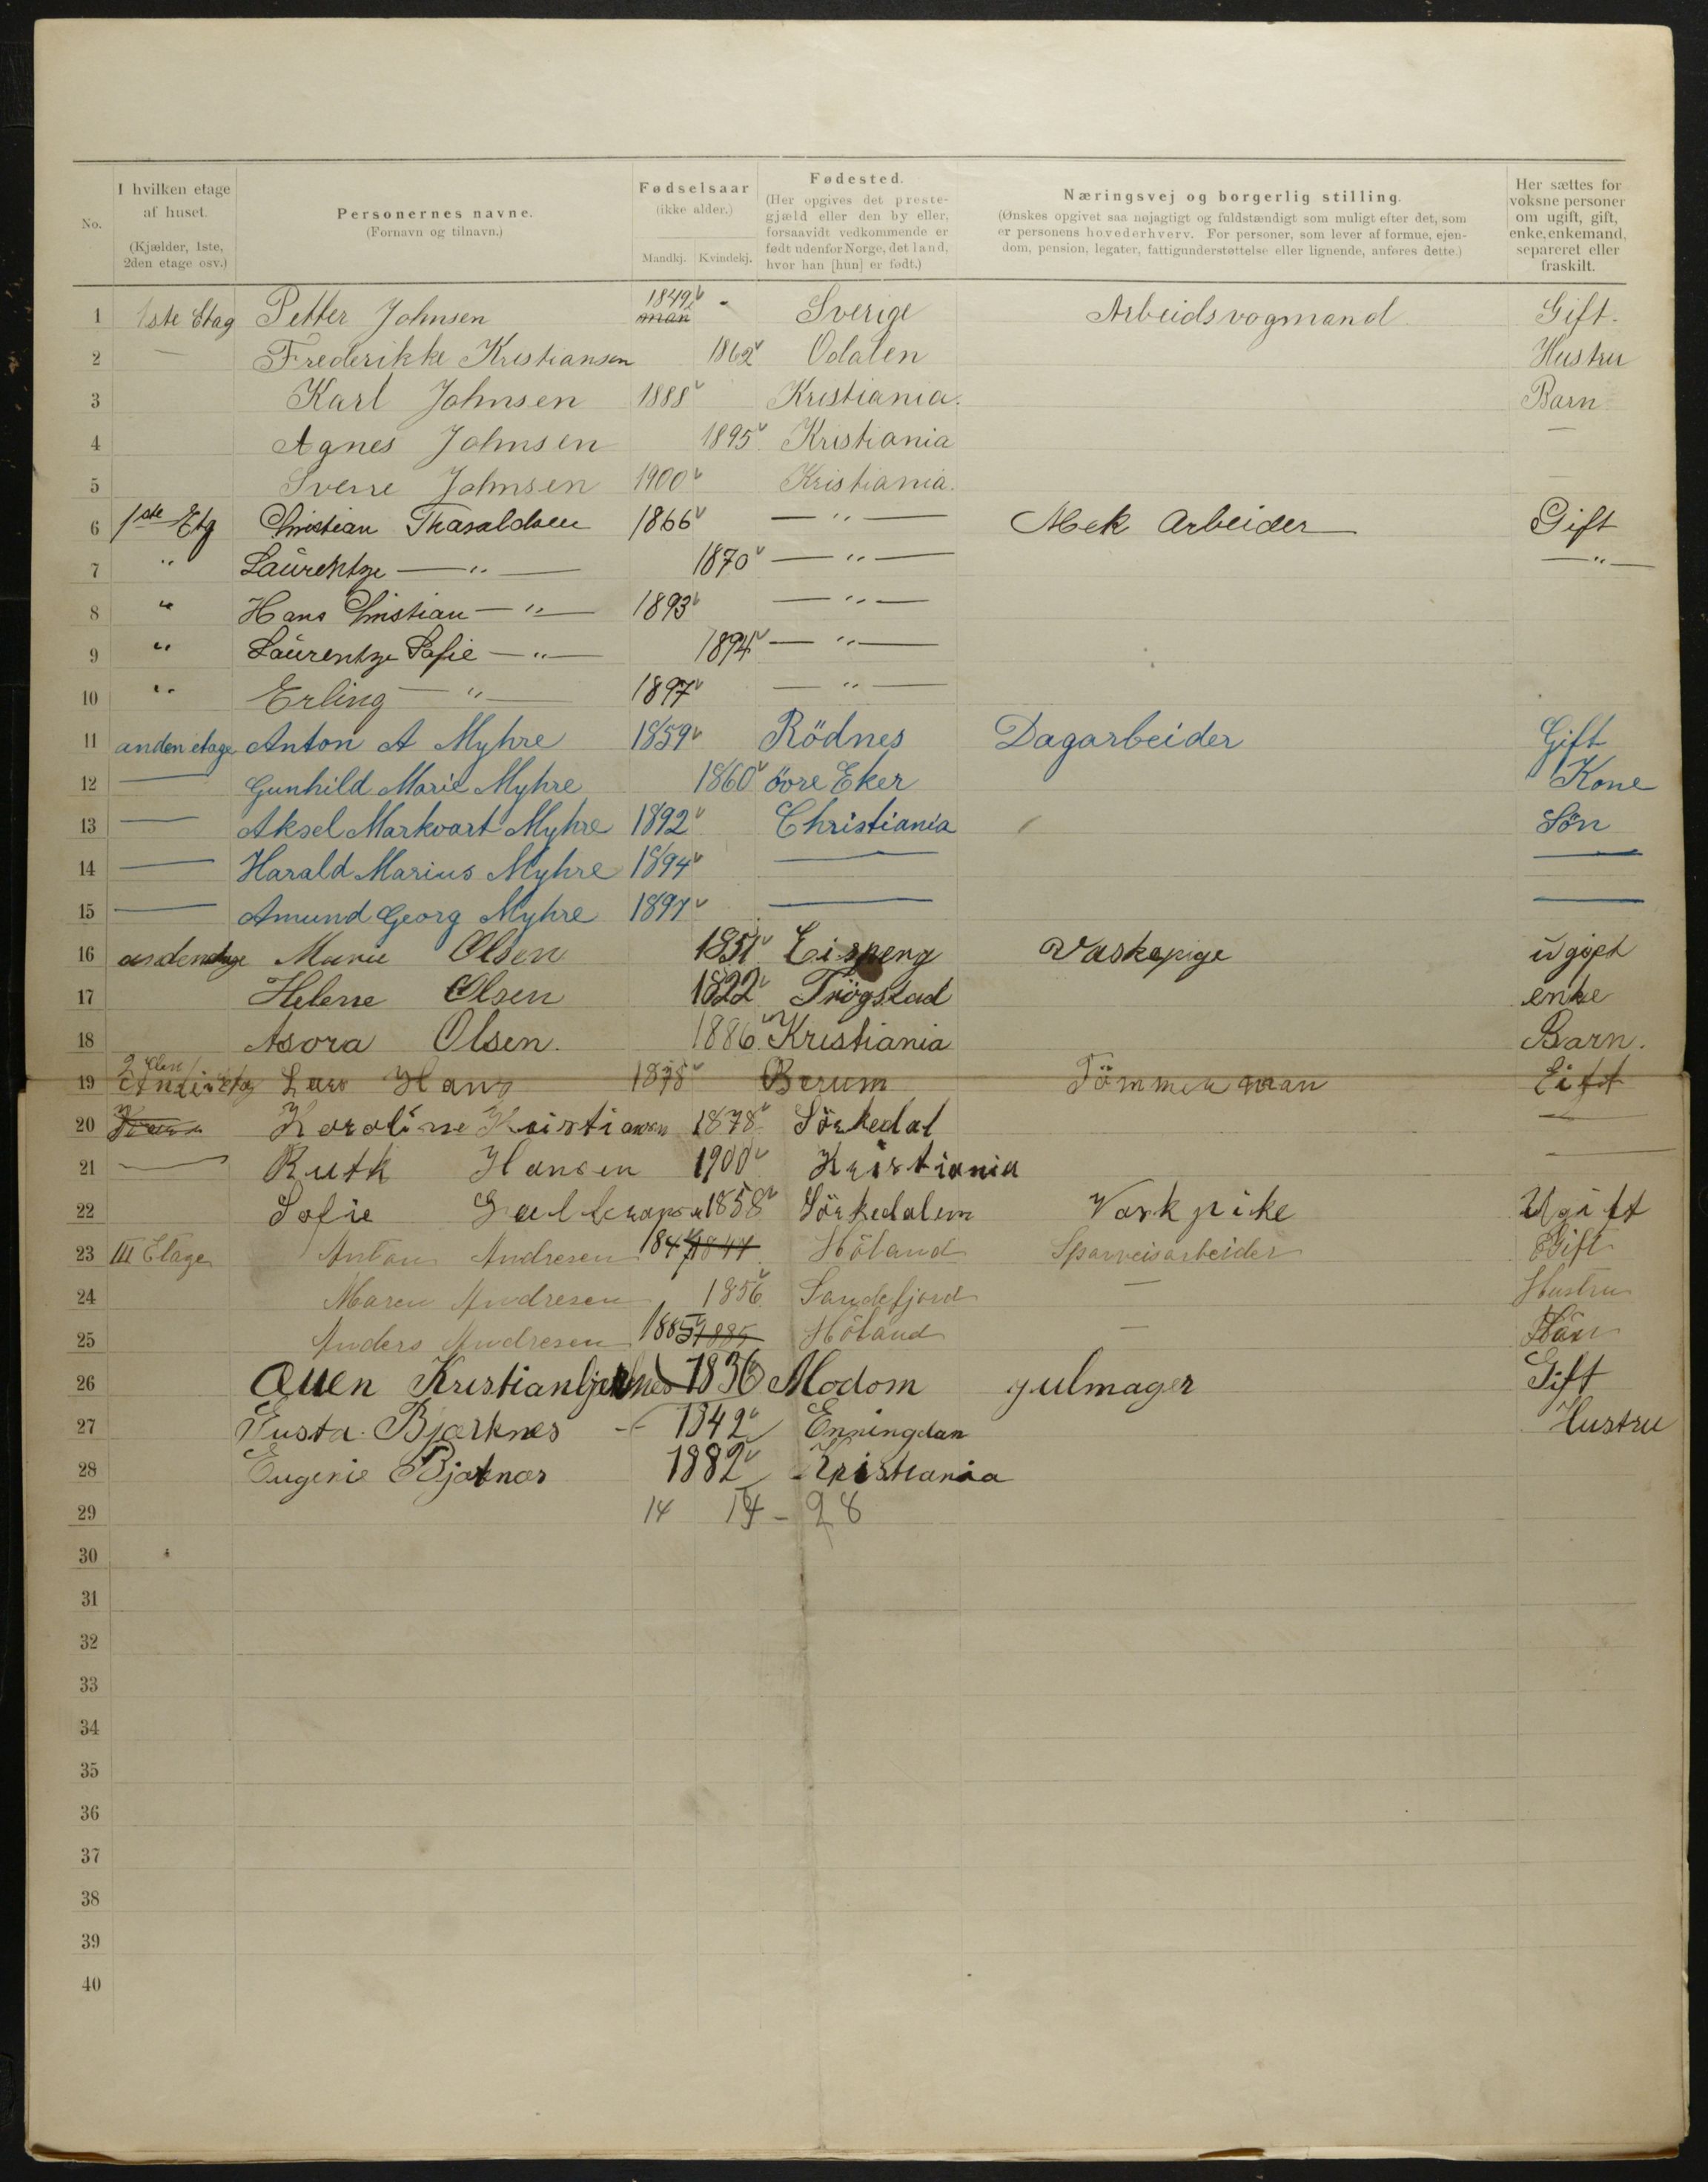 No.
I hvilken etage af huset. (Kjælder, 1ste, 2den etage osv.)
Personernes navne. (Fornavn og tilnavn.)
Fødselsaar (ikke alder.) Mandkj. Kvindekj.
Fødested. (Her opgives det prestegjæld eller den by eller, forsaavidt vedkommende er født udenfor Norge, det land, hvor han [hun] er født.)
Næringsvej og borgerlig stilling. (Ønskes opgivet saa nøjagtigt og fuldstændigt som muligt efter det, som er personens hovederhverv. For personer, som lever af formue, ejendom, pension, legater, fattigunderstøttelse eller lignende, anføres dette.)
Her sættes for voksne personer om ugift, gift, enke, enkemand, separeret eller fraskilt.
1 1ste Etag Petter Johnsen 1849 man - Sverige Arbeidsvogmand Gift.
2 — Frederikke Kristiansen 1862 Odalen Hustru
3 Karl Johnsen 1888 Kristiania. Barn
4 Agnes Johnsen 1895 Kristiania —
5 Sverre Johnsen 1900 Kristiania. —
6 1ste Etg Christian Thasaldsen 1866 — " — Mek Arbeider Gift
7 " Laurentze — " — 1870 — " — — " —
8 " Hans Christian — " — 1893 — " —
9 " Laurentze Sofie — " — 1894 — " —
10 " Erling — " — 1897 — " —
11 anden etage Anton A Myhre 1859 Rödnes Dagarbeider Gift
12 — Gunhild Marie Myhre 1860 övre Eker Kone
13 — Aksel Markvart Myhre 1892 Christiania Sön
14 — Harald Marius Myhre 1894 — —
15 — Amund Georg Myhre 1897 — —
16 andenetage Marie Olsen 1851 Eisperg Vaskepige ugift
17 Helene Olsen 1822 Trögstad enke
18 Asora Olsen. 1886. Kristiania Barn.
19 2 Lars Hans 1878 Berum Tömmerman Gift
20 Karoline Kristiansen 1878 Sörkedal —
21 — Ruth Hansen 1900 Kristiania —
22 Sofie 1858 Sörkedalem Vaskpike Ugift
23 III Etage Anton Andresen 1847 1847 Höland Sporveisarbeider Gift
24 Maren Andresen 1856 Sandefjord — Hustru
25 Anders Andresen 1885 1885 Höland — Sön
26 Ouen Kristianbjerknes 1836 Modom julmager Gift
27 Gusta. Bjærknes - 1842 Enningdan Hustru
28 Eugenie Bjærknes 1882 Kristiania
29 14 14 - 28
30
31
32
33
34
35
36
37
38
39
40